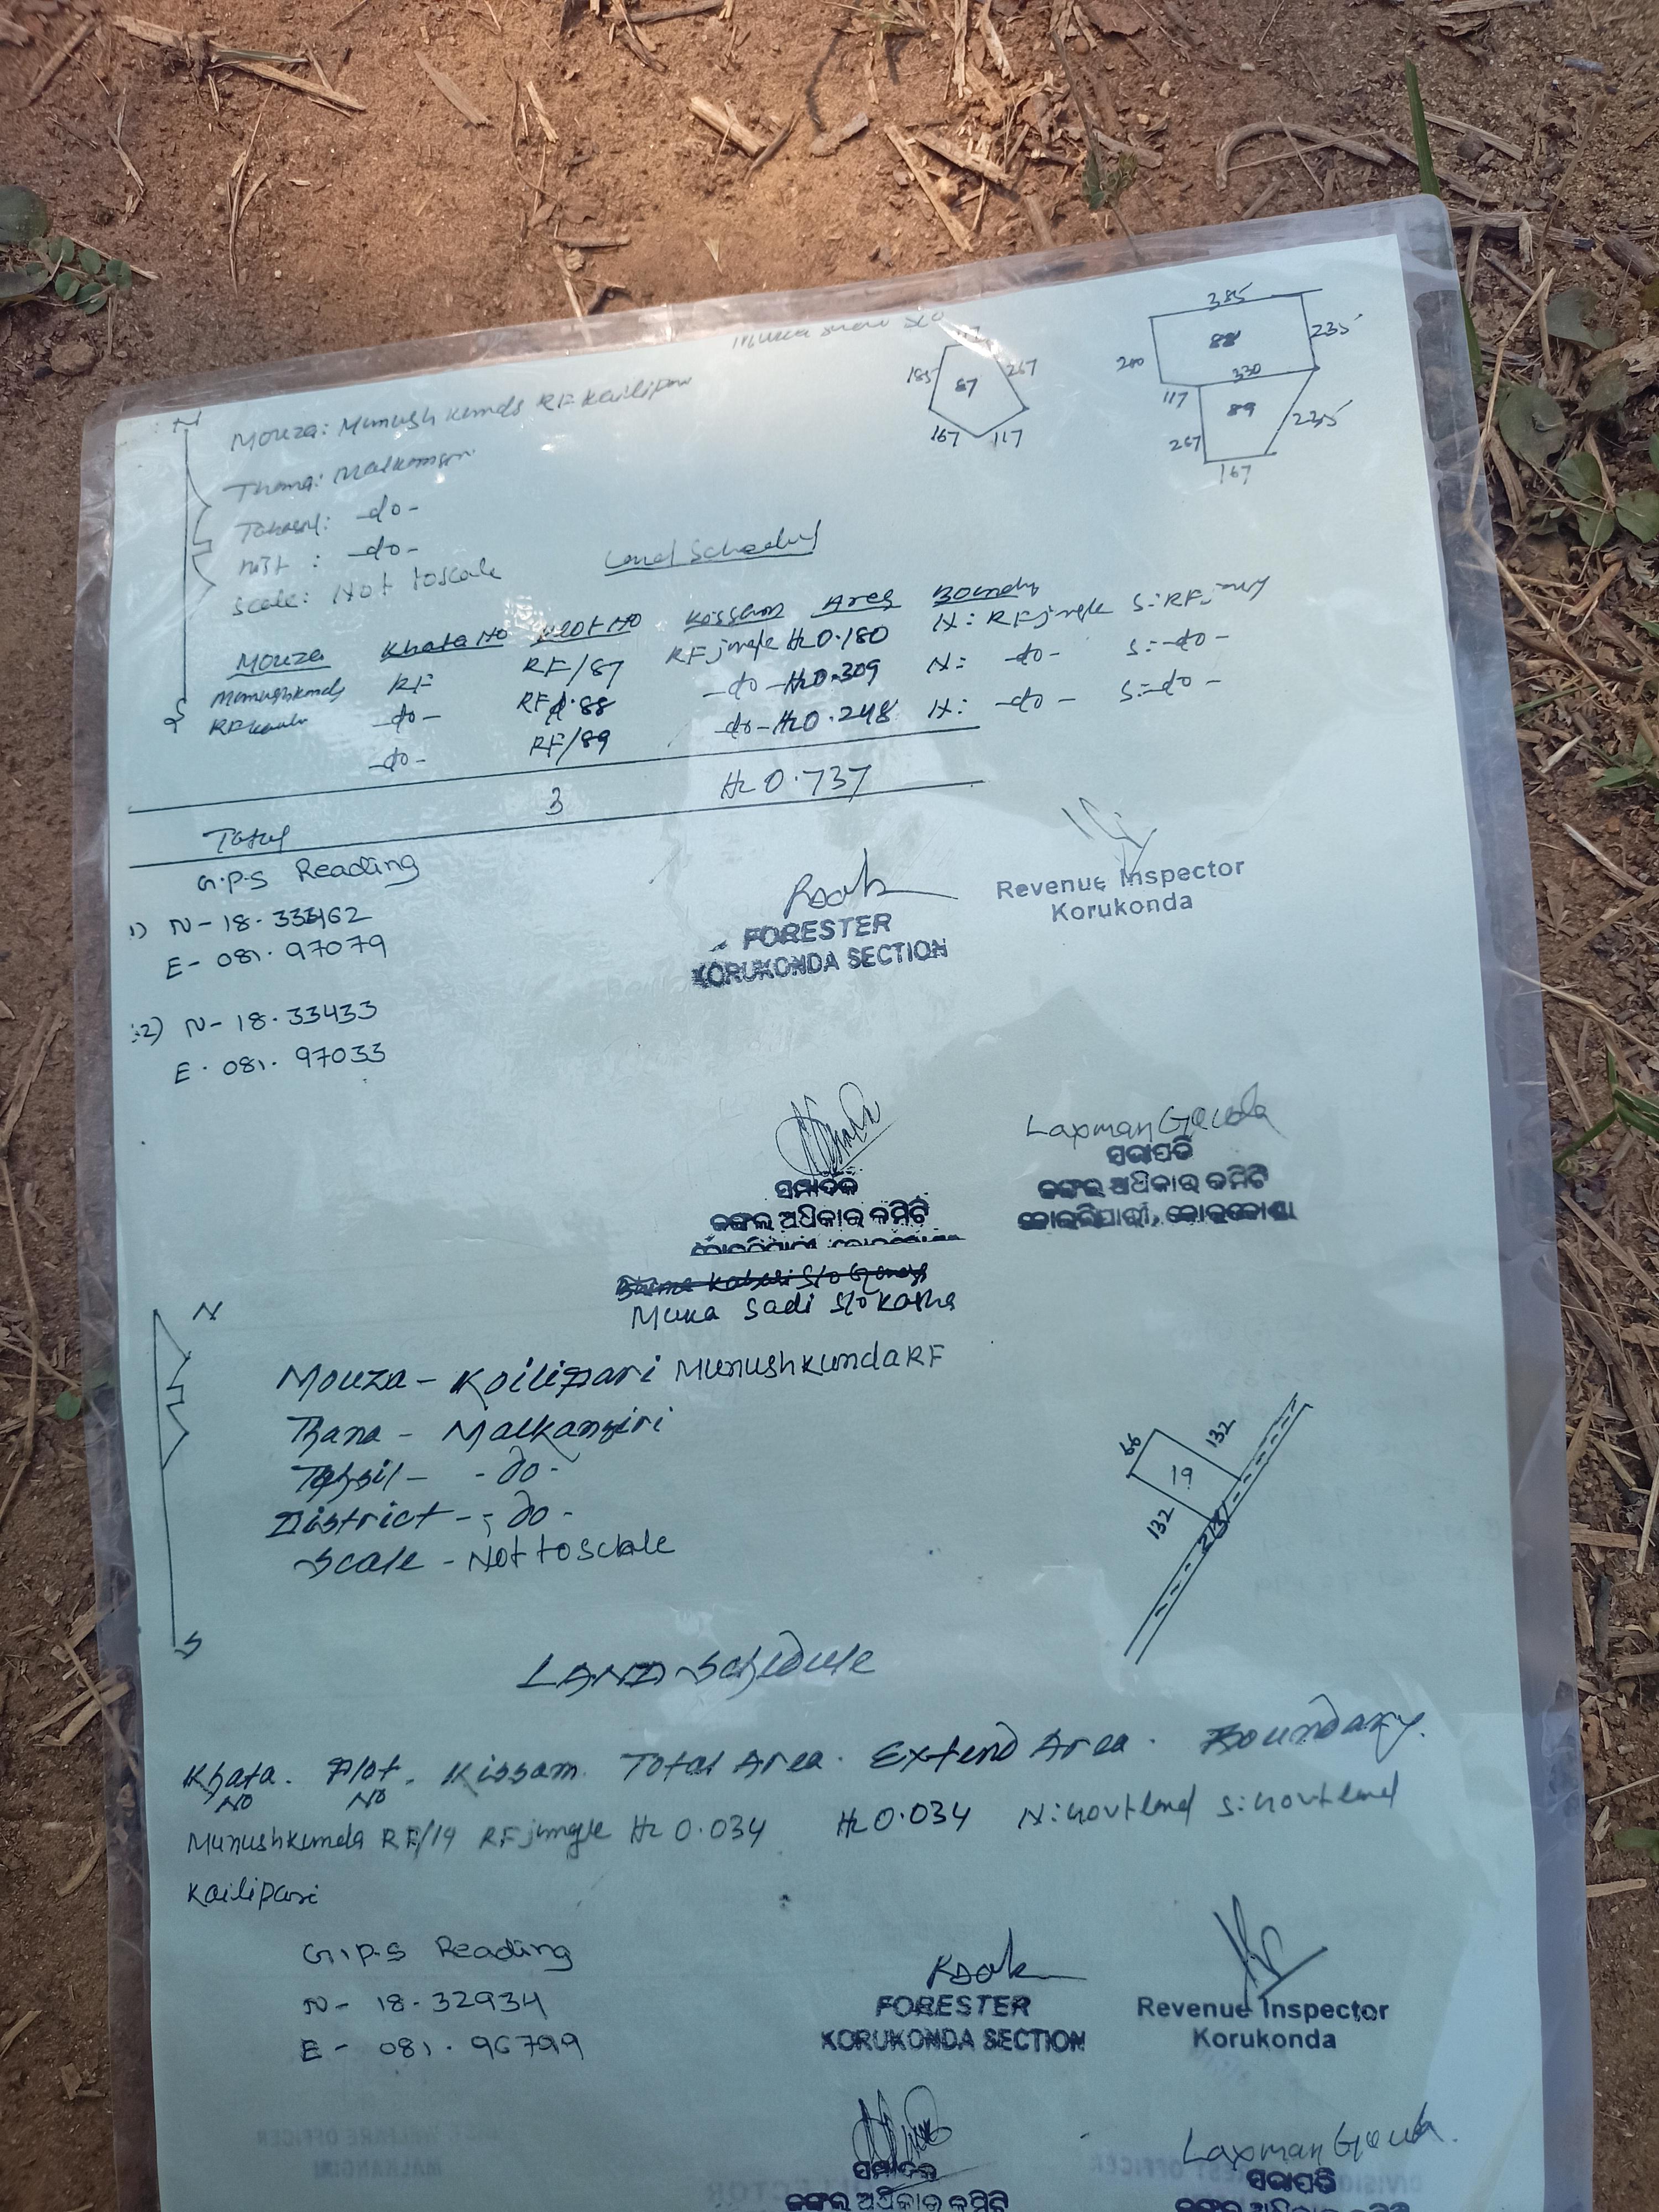 185
87
267
167
117
385
88
235
200
330
117
89
235
267
167
N
Mouza: Munushkunda RF Kailipari
Thana: Malkangiri
Tahasil: -do-
Dist : -do-
Scale: Not toscale
S
Land Schedul
Mouza Khata No Plot No Kissam Area Boundry
Munushkunda RF RF/87 RF jungle Hc 0.180 N: RF jungle S: RF jungle
RF -do- RF/88 -do- Hc 0.309 N: -do- S: -do-
-do- RF/89 -do- Hc 0.248 N: -do- S: -do-
Total 3 Hc 0.737
G.P.S Reading
1) N- 18.
E- 081.97079
2) N- 18.33433
E. 081.97033
FORESTER
KORUKONDA SECTION
Revenue Inspector
Korukonda
ସମ୍ପାଦକ
ଜଙ୍ଗଲ ଅଧିକାର କମିଟି
Laxman Gouda
ସଭାପତି
ଜଙ୍ଗଲ ଅଧିକାର କମିଟି
କୋଇଲିପାରୀ, କୋରୁକୋଣ୍ଡା
Muka Sadi S/o
N
Mouza - Koilipari Munushkunda RF
Thana - Malkangiri
Tahsil - -do-
District - -do-
Scale - Not to scale
S
66
132
19
132
LAND Schedule
Khata No Plot No Kissam Total Area Extend Area Boundary
Munushkunda RF/19 RF jungle Hc 0.034 Hc 0.034 N: Govt land S: Govt land
Kailipari
G.P.S Reading
N- 18.32934
E- 081.96799
FORESTER
KORUKONDA SECTION
Revenue Inspector
Korukonda
ସମ୍ପାଦକ
ଜଙ୍ଗଲ ଅଧିକାର କମିଟି
Laxman Gouda
ସଭାପତି
ଜଙ୍ଗଲ ଅଧିକାର କମିଟି